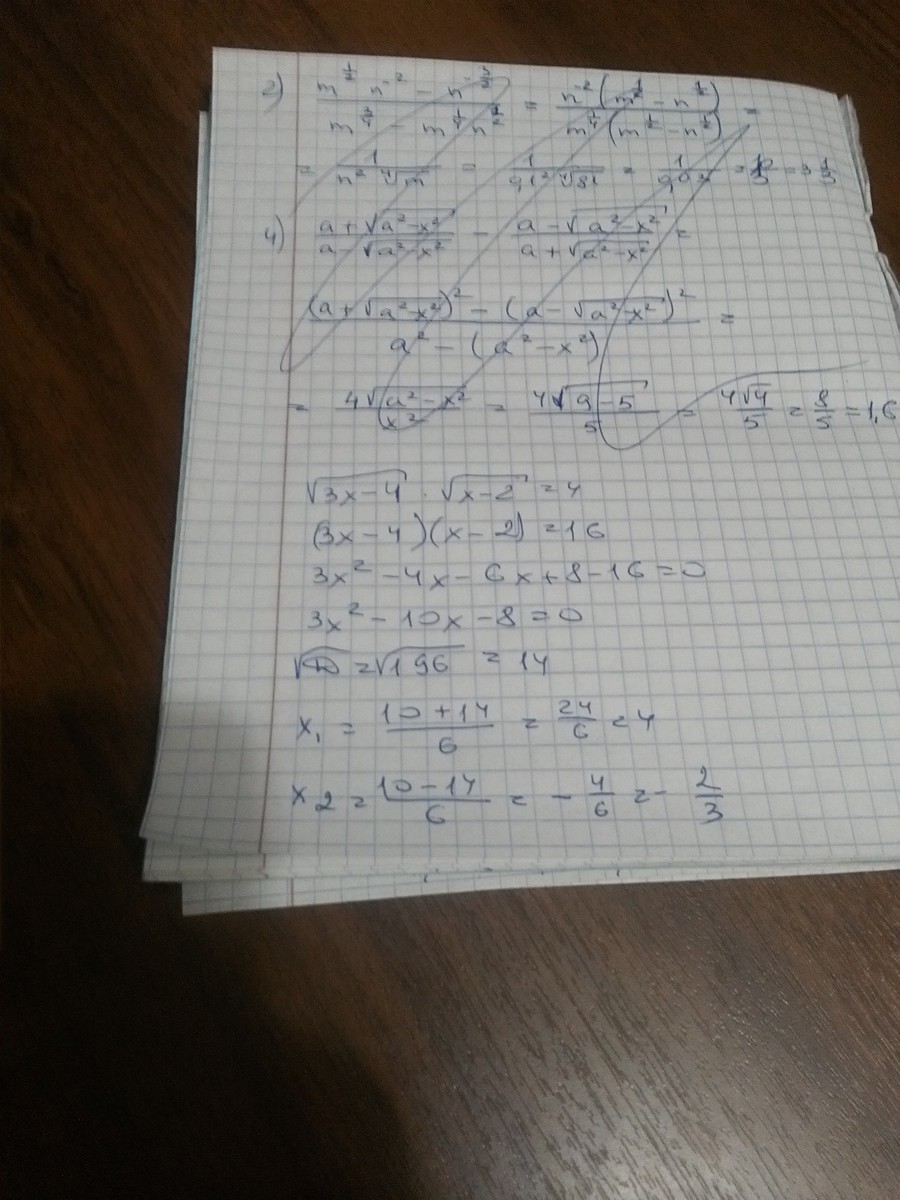 2) (m^{1/2} n^{-2} - n^{-3/2}) / (m^{3/4} - m^{1/4} n^{1/2}) = n^{-2}(m^{1/2} - n^{1/2}) / m^{1/4}(m^{1/2} - n^{1/2}) =
= 1 / (n² ∜m) = = = 3 1/3
4) (a + √(a²-x²)) / (a - √(a²-x²)) - (a - √(a²-x²)) / (a + √(a²-x²)) =
((a + √(a²-x²))² - (a - √(a²-x²))²) / (a² - (a² - x²)) =
= 4√(a²-x²) / x² = 4√(9-5) / 5 = 4√4 / 5 = 8/5 = 1,6
√(3x-4) · √(x-2) = 4
(3x-4)(x-2) = 16
3x² - 4x - 6x + 8 - 16 = 0
3x² - 10x - 8 = 0
√D = √196 = 14
x₁ = (10 + 14) / 6 = 24/6 = 4
x2 = (10 - 14) / 6 = - 4/6 = - 2/3